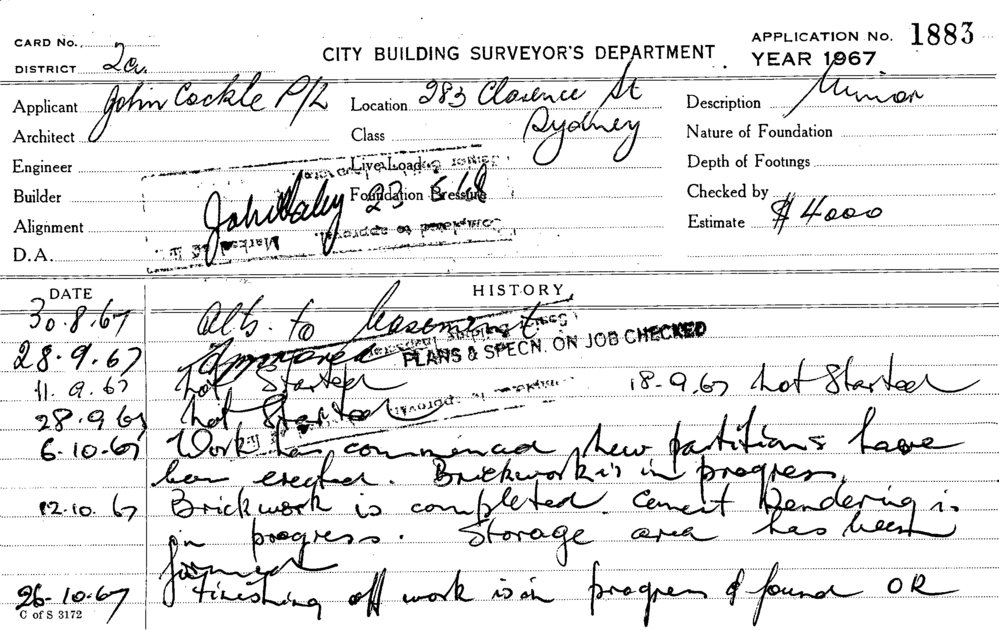 CARD No. 2a.
CITY BUILDING SURVEYOR'S DEPARTMENT
APPLICATION No. 1883
DISTRICT
YEAR 1967
Applicant John Cockle P/L
Location 283 Clarence St
Sydney
Description Minor
Architect
Class
Nature of Foundation
Engineer
Live Loads
Depth of Footings
Builder
Foundation Pressure
23 6 68
Checked by
Alignment
Estimate $4000
D.A.
DATE
HISTORY
30.8.67 Alts. to basement
28.9.67 Approved
PLANS & SPECN. ON JOB CHECKED
11.9.67 Not Started 18-9.67 Not Started
28.9.67 Not Started
6.10.67 Work has commenced New partitions have
been erected. Brickwork is in progress.
12.10.67 Brickwork is completed. Cement Rendering is
in progress. Storage area has been
formed
26-10-67 Finishing off work is in progress & found OR
C of S 3172